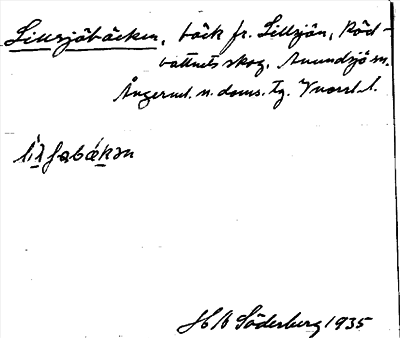 Lillsjöbäcken, bäck fr. Lillsjön, Röd-
vattnets skog, Anundsjö sn.
Ångerml. n. doms. tg. Vnorrl. l.
lílʃɵbǽkən
H Söderberg 1935